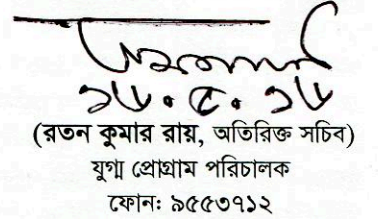 ১৬.৫.১৬
(রতন কুমার রায়, অতিরিক্ত সচিব)
যুগ্ম প্রোগ্রাম পরিচালক
ফোন: ৯৫৫৩৭১২